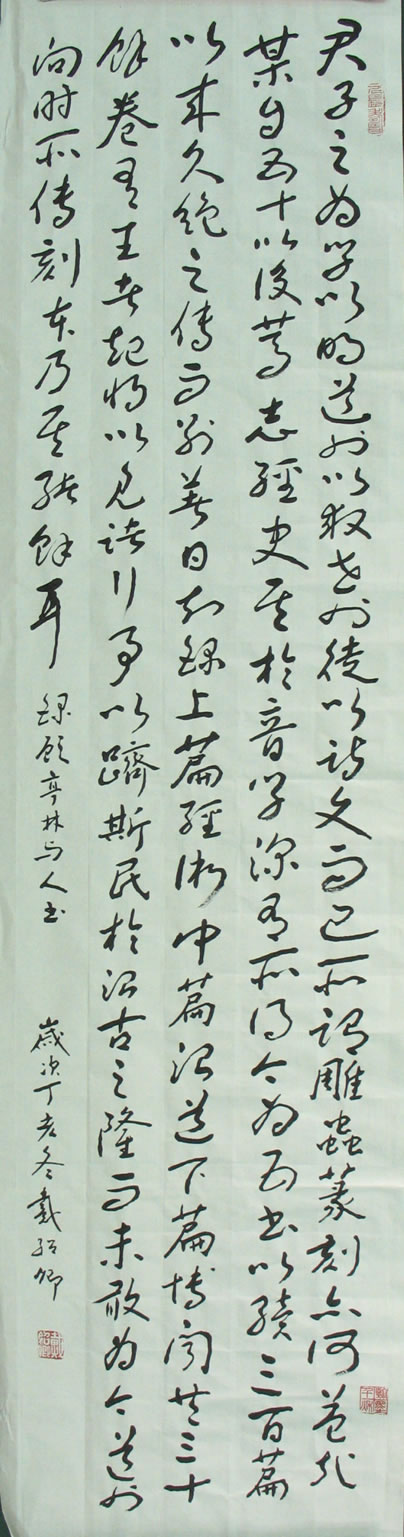 君子之为学以明道也以救世也徒以诗文而已所谓雕蟲篆刻亦何益哉
某自五十以後篤志經史其於音学深有所得今为五书以續三百篇
以来久絕之傳而别著日知錄上篇經術中篇治道下篇博闻共三十
餘卷有王者起将以見諸行事以躋斯民於治古之隆而未敢为今道也
向时所傳刻本乃其緒餘耳 錄顾亭林与人书 歲次丁亥冬戴紹卿